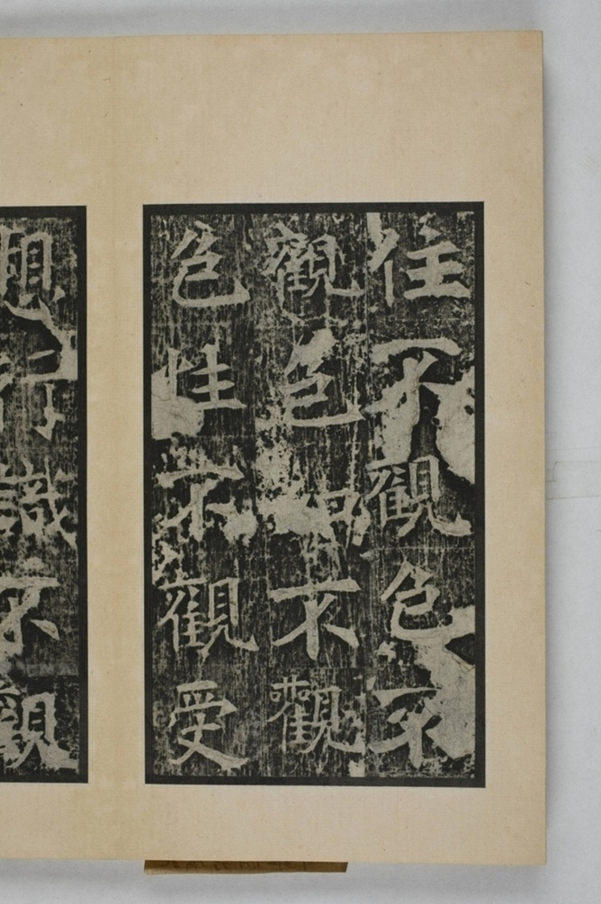 住不觀色不
觀色如不觀
色性不觀受
想行識不觀